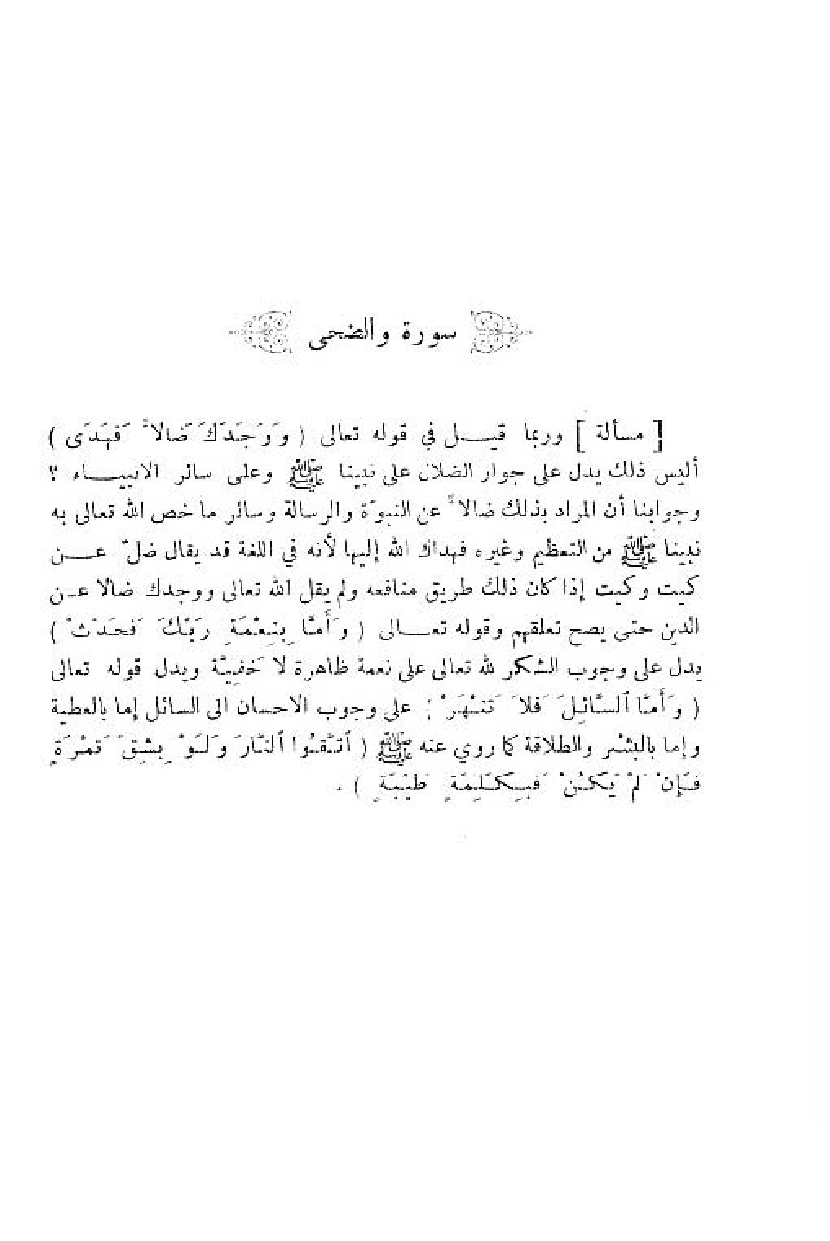 سورة والضحى
[ مسألة ] وربما قيـــل في قوله تعالى ( وَوَجَدَكَ ضَالاًّ فَهَدَى )
أليس ذلك يدل على جواز الضلال على نبينا ﷺ وعلى سائر الانبيـــاء ؟
وجوابنا أن المراد بذلك ضالاً عن النبوّة والرسالة وسائر ما خص الله تعالى به
نبينا ﷺ من التعظيم وغيره فهداك الله إليها لأنه في اللغة قد يقال ضلّ عـــن
كيت وكيت إذا كان ذلك طريق منافعه ولم يقل الله تعالى ووجدك ضالا عـن
الدين حتى يصح تعلقهم وقوله تعـــالى ( وَأَمَّا بِنِعْمَةِ رَبِّكَ فَحَدِّثْ )
يدل على وجوب الشكر لله تعالى على نعمة ظاهرة لا خَفِيَّة ويدل قوله تعالى
( وَأَمَّا ٱلسَّائِلَ فَلاَ تَنْهَرْ ) على وجوب الاحسان الى السائل إما بالعطية
وإما بالبِشْر والطلاقة كما روي عنه ﷺ ( ٱتَّقُوا ٱلنَّارَ وَلَوْ بِشِقِّ تَمْرَةٍ
فَإِنْ لَمْ يَكُنْ فَبِكَلِمَةٍ طَيِّبَةٍ ) .